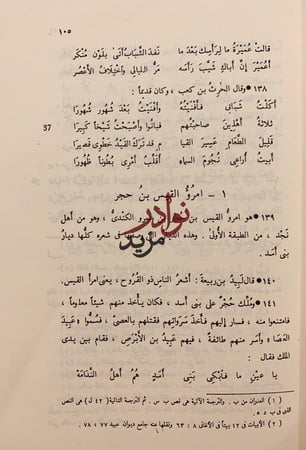 ١٠٥
قالت عُمَيْرَةُ ما لِرَأسِك بَعدَ ما نَفِدَ الشَّبابُ أتَى بلَوْنٍ مُنْكَرِ
أعُمَيْرَ إنَّ أباكِ شَيَّبَ رَأسَه مَرُّ اللَّيالِى واخْتِلافُ الأعْصُرِ
١٣٨ • وقال الحرث بن كعب ، وكان قديماً :
أكَلْتُ شَبابِى فأفْنَيْتُهُ وأفْنَيْتُ بَعْدَ شُهُورٍ شُهُورَا
ثلاثَةُ أهْلِينَ صاحَبْتُهم فبانُوا وأصْبَحْتُ شَيْخًا كَبِيرَا
37
قَلِيلَ الطَّعامِ عَسِيرَ القِيا مِ قد تَرَكَ القَيْدُ خَطْوِى قَصِيرَا
أبِيتُ أُراعِى نُجُومَ السَّماءِ أُقَلِّبُ أمْرِى بُطُونًا ظُهُورَا
١ - امرؤُ القيس بنُ حجر
١٣٩ • هو امرؤ القيس بن حجر بن عمرو الكندىُّ ، وهو من أهل
نَجْد ، من الطبقة الأولى . وهذه الديار فى شعره كلُّها ديارُ
بنى أسد .
١٤٠ • قال لَبيدُ بن ربيعةَ : أشعرُ الناس ذو القُروح ، يعنى امرأ القيس .
١٤١ • ومُلِّك حُجْرٌ على بنى أسد ، فكان يأخذ منهم شيئاً معلوماً ،
فامتنعوا منه ، فسار إليهم فأخذ سَرَواتِهم فقتلهم بالعصىّ ، فسُمُّوا « عَبِيدَ
العَصَا » وأسر منهم طائفةً ، فيهم عَبيدُ بن الأَبْرَص ، فقام بين يدى
الملك فقال :
يا عَيْنِ ما فابْكِى بَنِى أسَدٍ هُمُ أهلُ النَّدَامَهْ
( ١ ) العنوان من ب . والترجمة الآتية هى نص ب س . ثم الترجمة التالية ( ٤٢ ل ) هى النص
الذى فى
( ٢ ) الأبيات فى ١٢ بيتاً فى الأغانى ٨ : ٦٣ ونقلها عنه جامع ديوان عبيد ٧٧ ، ٧٨ .
نوادر
مزيد